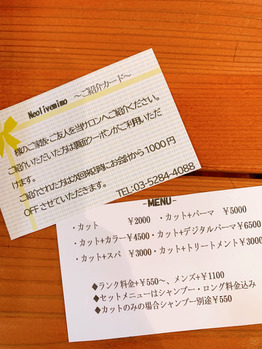 Neolivemimo ～ご紹介カード～
様のご家族・ご友人を当サロンへご紹介ください。
ご紹介いただいた方は裏面クーポンがご利用いただ
けます。
ご紹介された方が回来店時にお会計から1000円
OFFさせていただきます。
TEL:03-5284-4088
-MENU-
・カット ¥2000 ・カット+パーマ ¥5000
・カット+カラー¥4500 ・カット+デジタルパーマ¥6500
・カット+スパ ¥3000 ・カット+トリートメント¥3000
◆ランク料金+¥550～、メンズ+¥1100
◆セットメニューはシャンプー・ロング料金込み
◆カットのみの場合シャンプー別途¥550